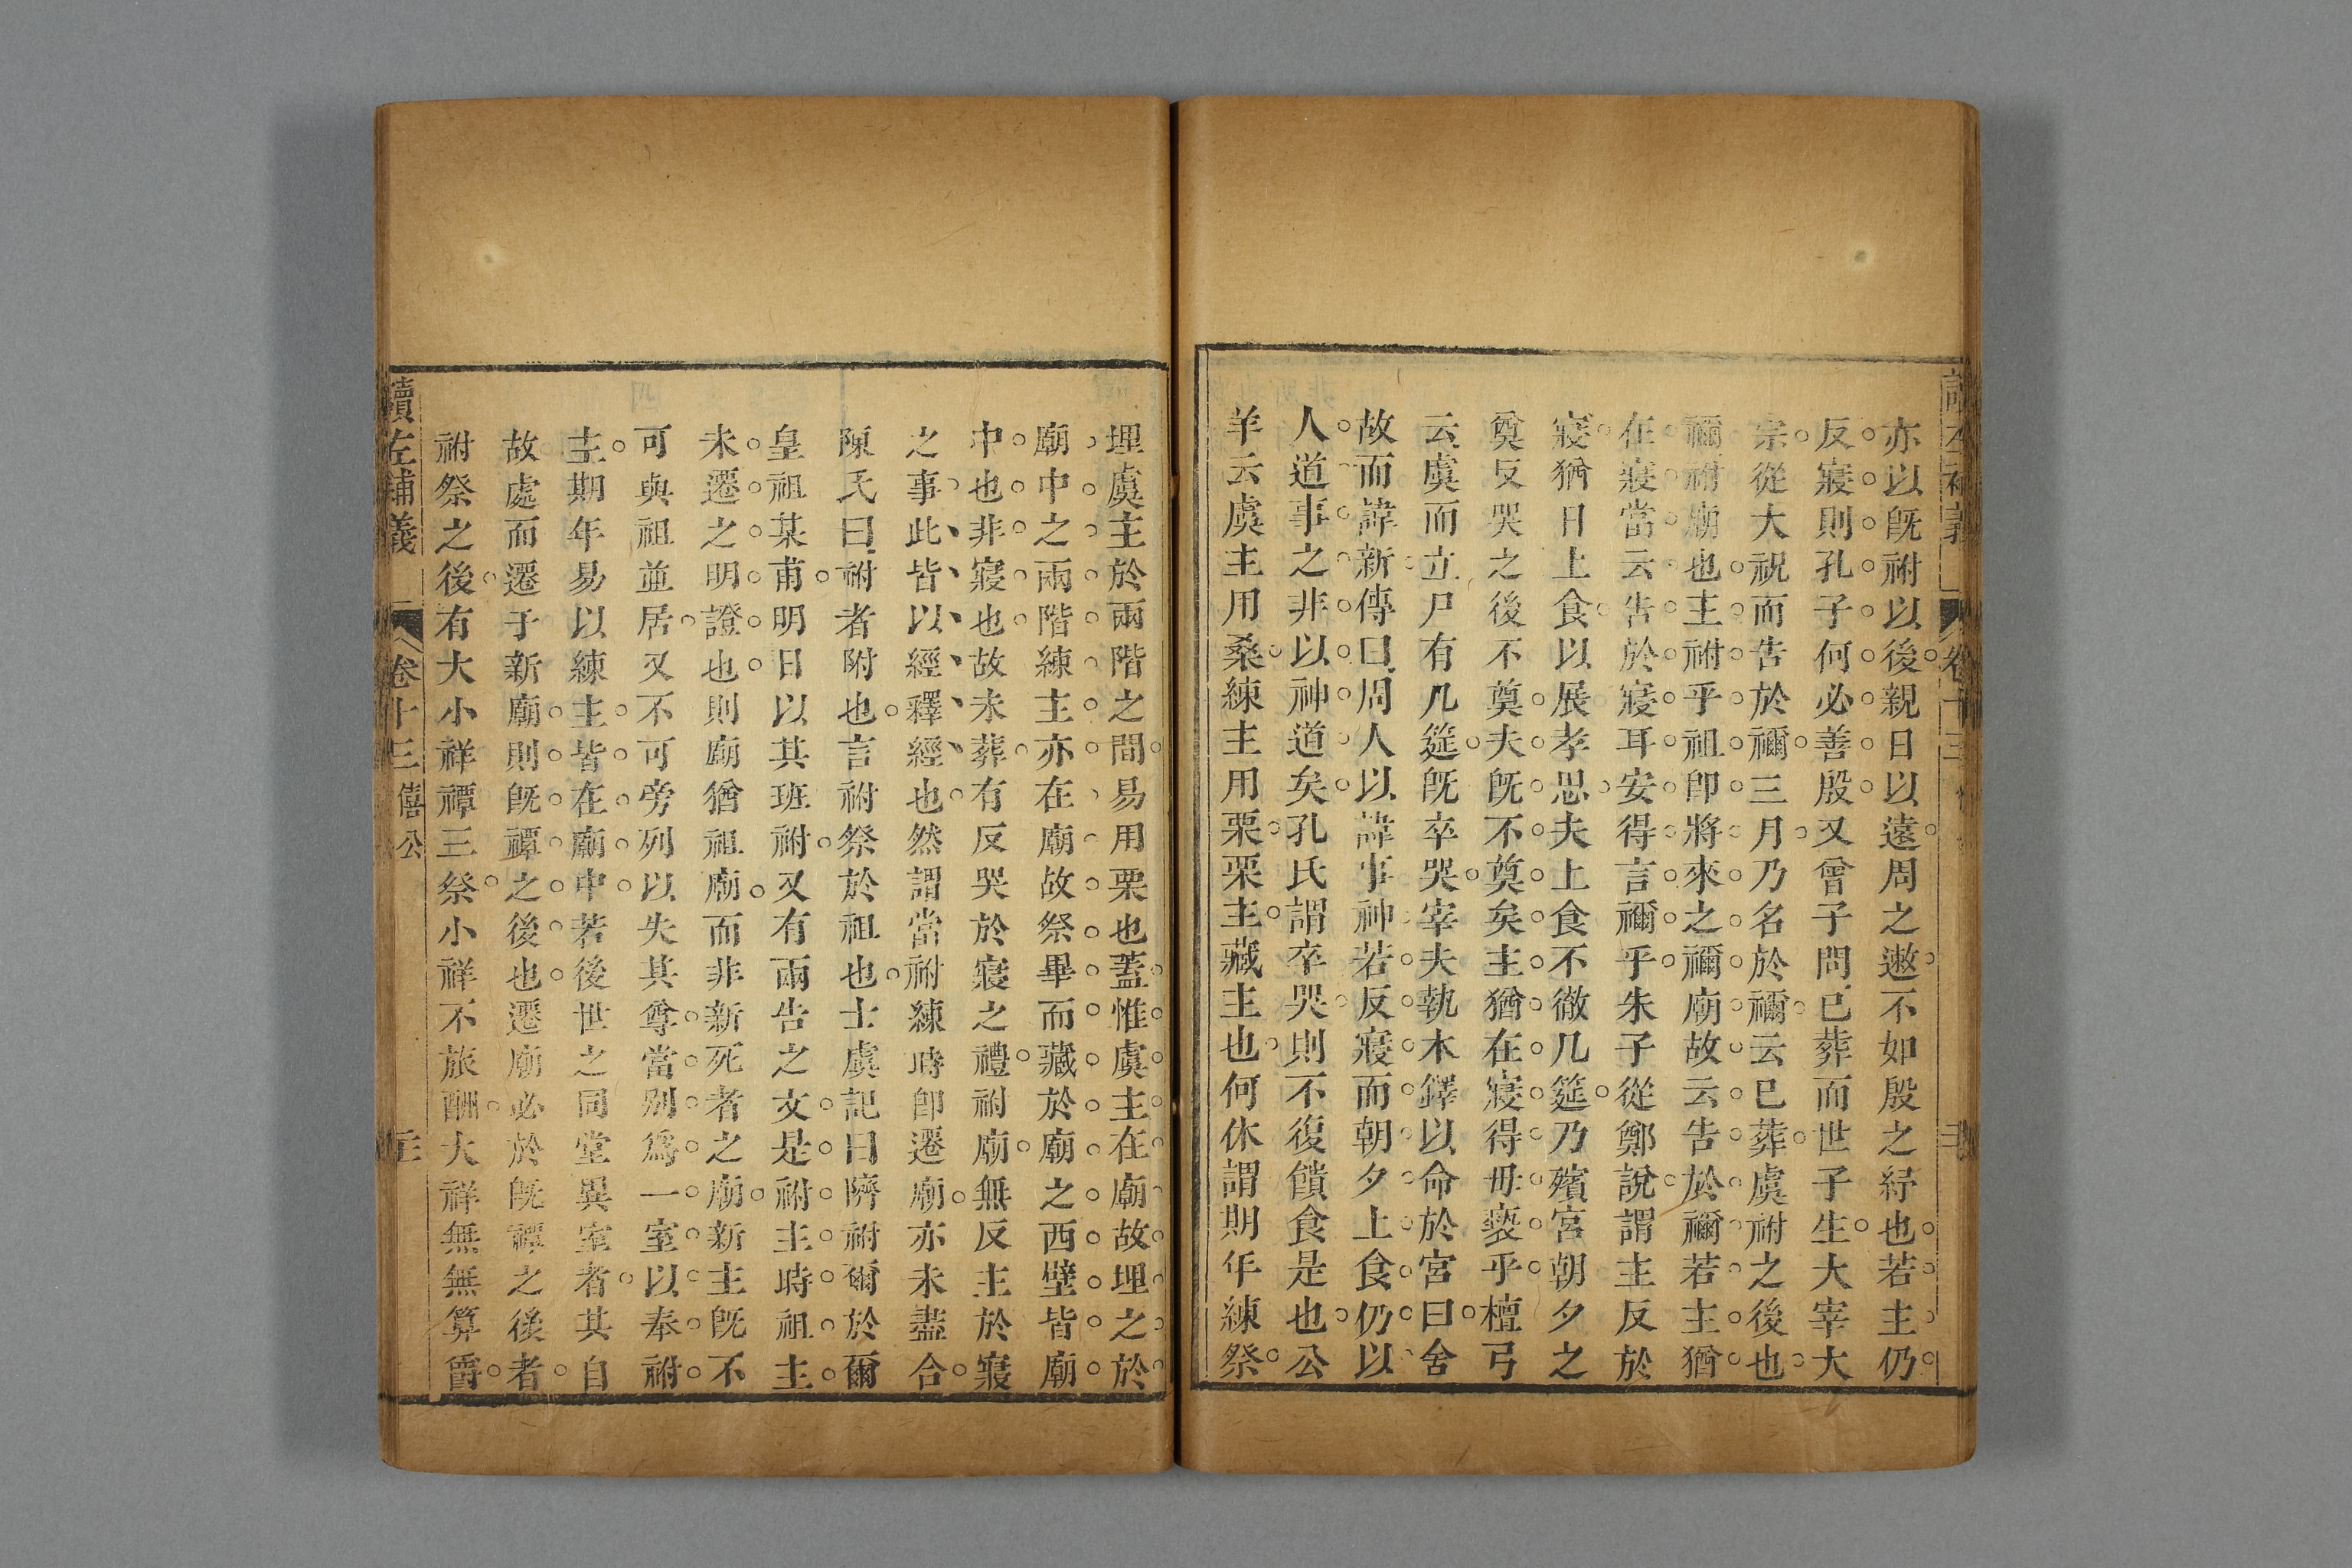 亦以旣祔以後親日以遠周之遬不如殷之紓也若主仍
反寢則孔子何必善殷又曾子問已葬而世子生大宰大
宗從大祝而告於禰三月乃名於禰云已葬虞祔之後也
禰祔廟也主祔乎祖卽將來之禰廟故云告於禰若主猶
在寢當云告於寢耳安得言禰乎朱子從鄭說謂主反於
寢猶日上食以展孝思夫上食不徹几筵乃殯宮朝夕之
奠反哭之後不奠夫旣不奠矣主猶在寢得毋褻乎檀弓
云虞而立尸有几筵旣卒哭宰夫執木鐸以命於宮曰舍
故而諱新傳曰周人以諱事神若反寢而朝夕上食仍以
人道事之非以神道矣孔氏謂卒哭則不復饋食是也公
羊云虞主用桑練主用栗栗主藏主也何休謂期年練祭
埋虞主於兩階之間易用栗也蓋惟虞主在廟故埋之於
廟中之兩階練主亦在廟故祭畢而藏於廟之西壁皆廟
中也非寢也故未葬有反哭於寢之禮祔廟無反主於寢
之事此皆以經釋經也然謂當祔練時卽遷廟亦未盡合
陳氏曰祔者附也言祔祭於祖也士虞記曰隮祔爾於爾
皇祖某甫明日以其班祔又有兩告之文是祔主時祖主
未遷之明證也則廟猶祖廟而非新死者之廟新主旣不
可與祖並居又不可旁列以失其尊當别爲一室以奉祔
主期年易以練主皆在廟中若後世之同堂異室者其自
故處而遷于新廟則旣禫之後也遷廟必於旣禫之後者
祔祭之後有大小祥禫三祭小祥不旅酬大祥無無算爵
讀左補義 卷十三 僖公